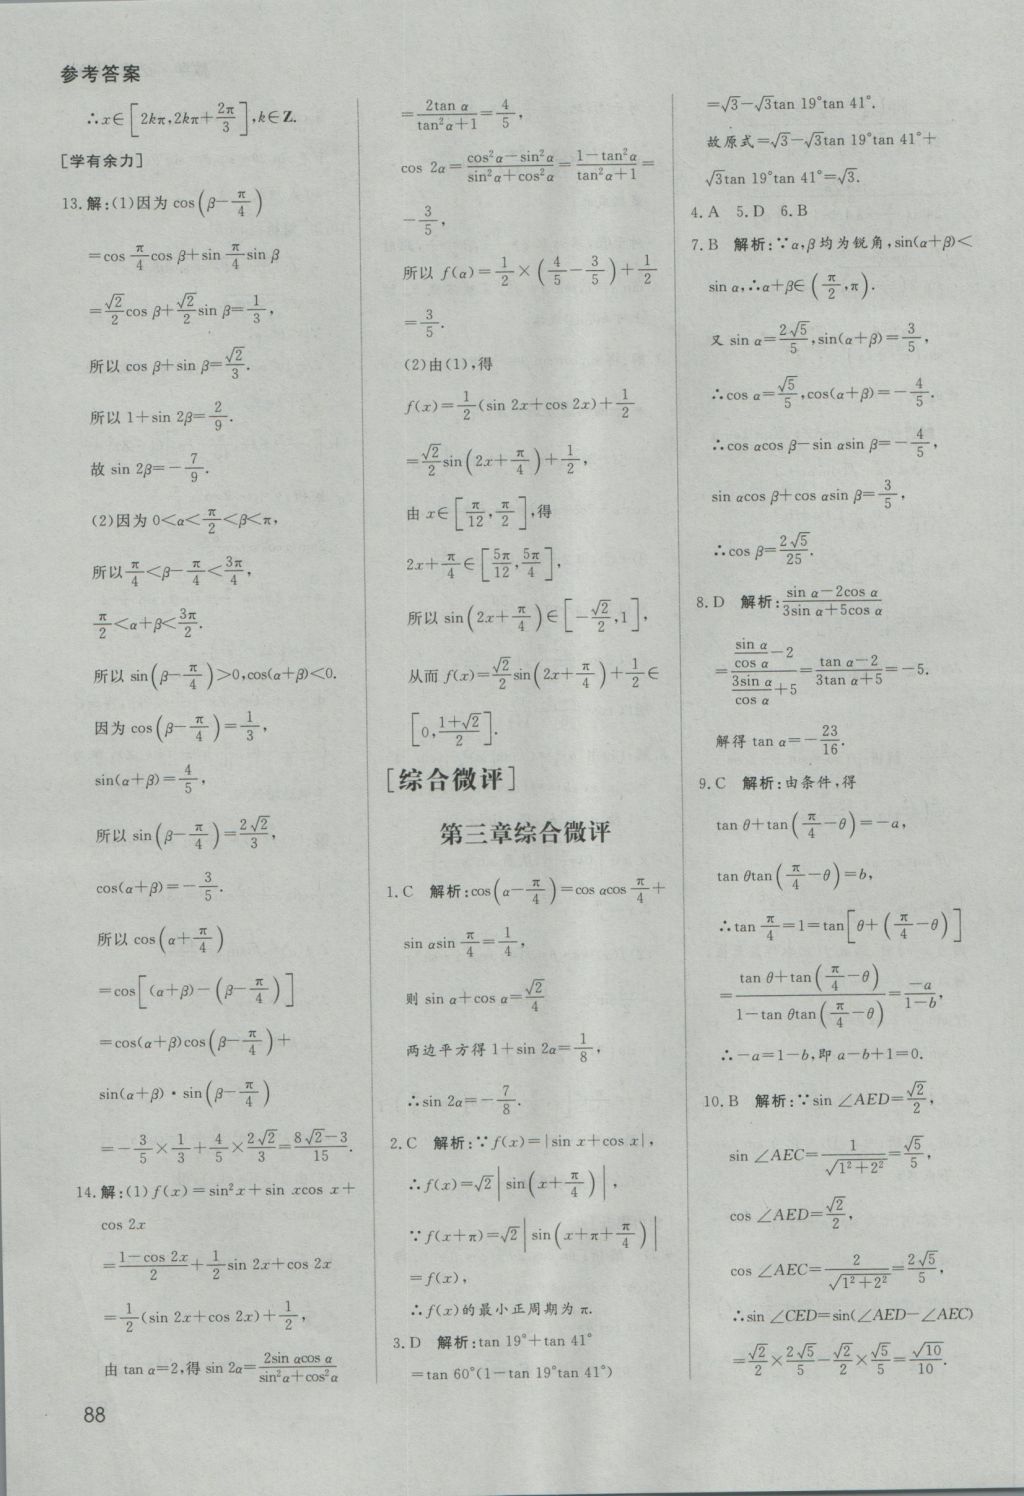 参考答案
∴x∈[2kπ,2kπ+2π/3],k∈Z.
[学有余力]
13.解:(1)因为 cos(β-π/4)
=cos π/4 cos β+sin π/4 sin β
=√2/2 cos β+√2/2 sin β=1/3,
所以 cos β+sin β=√2/3.
所以 1+sin 2β=2/9.
故 sin 2β=-7/9.
(2)因为 0<α<π/2<β<π,
所以 π/4<β-π/4<3π/4,
π/2<α+β<3π/2.
所以 sin(β-π/4)>0,cos(α+β)<0.
因为 cos(β-π/4)=1/3,
sin(α+β)=4/5,
所以 sin(β-π/4)=2√2/3,
cos(α+β)=-3/5.
所以 cos(α+π/4)
=cos[(α+β)-(β-π/4)]
=cos(α+β)cos(β-π/4)+
sin(α+β)·sin(β-π/4)
=-3/5×1/3+4/5×2√2/3=(8√2-3)/15.
14.解:(1)f(x)=sin²x+sin xcos x+
cos 2x
=(1-cos 2x)/2+1/2 sin 2x+cos 2x
=1/2(sin 2x+cos 2x)+1/2,
由 tan α=2,得 sin 2α=2sin αcos α/(sin²α+cos²α)
=2tan α/(tan²α+1)=4/5,
cos 2α=(cos²α-sin²α)/(sin²α+cos²α)=(1-tan²α)/(tan²α+1)=
-3/5,
所以 f(α)=1/2×(4/5-3/5)+1/2
=3/5.
(2)由(1),得
f(x)=1/2(sin 2x+cos 2x)+1/2
=√2/2 sin(2x+π/4)+1/2,
由 x∈[π/12,π/2],得
2x+π/4∈[5π/12,5π/4],
所以 sin(2x+π/4)∈[-√2/2,1],
从而 f(x)=√2/2 sin(2x+π/4)+1/2∈
[0,(1+√2)/2].
[综合微评]
第三章综合微评
1.C 解析:cos(α-π/4)=cos αcos π/4+
sin αsin π/4=1/4,
则 sin α+cos α=√2/4
两边平方得 1+sin 2α=1/8,
∴sin 2α=-7/8.
2.C 解析:∵f(x)=|sin x+cos x|,
∴f(x)=√2|sin(x+π/4)|,
∵f(x+π)=√2|sin(x+π+π/4)|
=f(x),
∴f(x)的最小正周期为 π.
3.D 解析:tan 19°+tan 41°
=tan 60°(1-tan 19°tan 41°)
=√3-√3tan 19°tan 41°.
故原式=√3-√3tan 19°tan 41°+
√3tan 19°tan 41°=√3.
4.A 5.D 6.B
7.B 解析:∵α,β均为锐角,sin(α+β)<
sin α,∴α+β∈(π/2,π).
又 sin α=2√5/5,sin(α+β)=3/5,
∴cos α=√5/5,cos(α+β)=-4/5.
∴cos αcos β-sin αsin β=-4/5,
sin αcos β+cos αsin β=3/5,
∴cos β=2√5/25.
8.D 解析:(sin α-2cos α)/(3sin α+5cos α)
=(sin α/cos α-2)/(3sin α/cos α+5)=(tan α-2)/(3tan α+5)=-5.
解得 tan α=-23/16.
9.C 解析:由条件,得
tan θ+tan(π/4-θ)=-a,
tan θtan(π/4-θ)=b,
∴tan π/4=1=tan[θ+(π/4-θ)]
=(tan θ+tan(π/4-θ))/(1-tan θtan(π/4-θ))=-a/(1-b),
∴-a=1-b,即 a-b+1=0.
10.B 解析:∵sin ∠AED=√2/2,
sin ∠AEC=1/√(1²+2²)=√5/5,
cos ∠AED=√2/2,
cos ∠AEC=2/√(1²+2²)=2√5/5,
∴sin ∠CED=sin(∠AED-∠AEC)
=√2/2×2√5/5-√2/2×√5/5=√10/10.
88